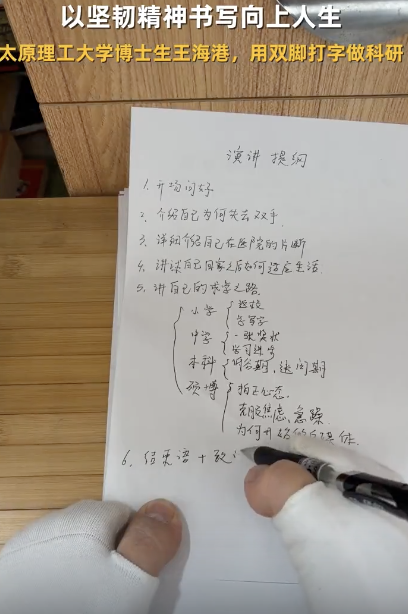 以坚韧精神书写向上人生
太原理工大学博士生王海港，用双脚打字做科研
演讲 提纲
1. 开场问好
2. 介绍自己为何失去双手
3. 详细介绍自己在医院的片断
4. 讲谈自己回家之后如何适应生活.
5. 讲自己的求学之路.
小学 返校
学写字
中学 一张奖状
学习进步
本科 低谷期、迷闷期
硕博 摆正心态.
克服焦虑、急躁
为何开始
6. 结束语 + 致